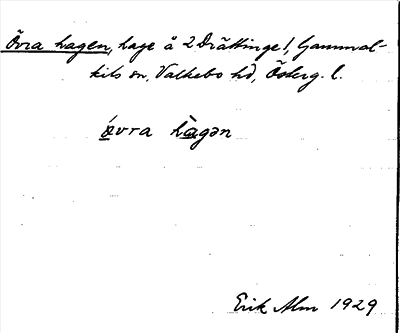 Övra hagen, hage å 2 Drättinge!, Gammal-
kils sn, Valkebo hd, Österg. l.
ǿvra hàgən
Erik Alm 1929